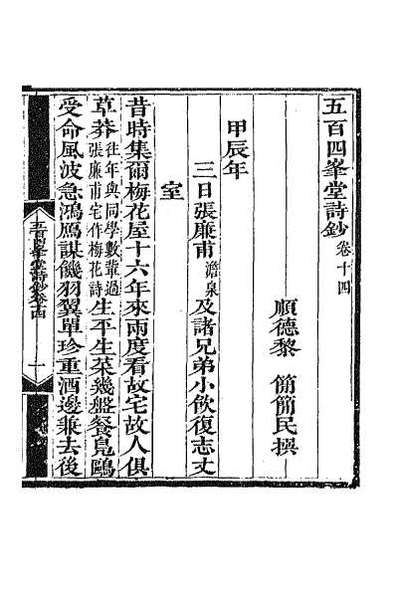 五百四峯堂詩鈔卷十四
順德黎 簡簡民撰
甲辰年
三日張廉甫澹泉及諸兄弟小飲復志丈
室
昔時集爾梅花屋十六年來兩度看故宅故人俱
草莽往年與同學數輩過張廉甫宅作梅花詩生平生菜幾盤餐鳧鷗
受命風波急鴻鴈謀饑羽翼單珍重酒邊兼去後
五百四峯堂詩鈔卷十四 一